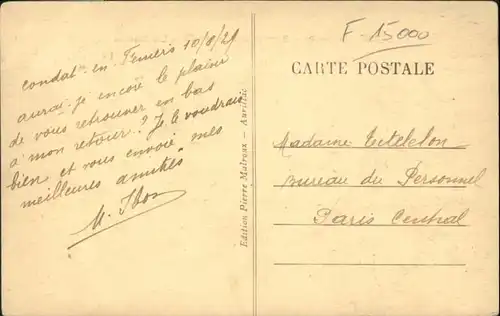 condat-en Feniers 10/8/29
aurai-je encore le plaisir
de vous retrouver en bas
a mon retour? Je le voudrais
bien et vous envoie mes
meilleures amitiés
M.
Edition Pierre Malroux - Aurillac
F-15000
CARTE POSTALE
Madame
Bureau du Personnel
Paris Central